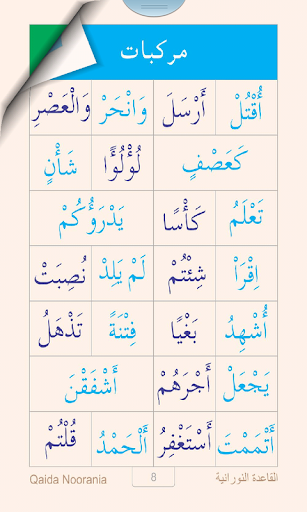 مركبات
أُقْتُلْ أَرْسَلَ وَانْحَرْ وَالْعَصْرِ
كَعَصْفٍ لُؤْلُؤًا شَأْنٍ
تَعْلَمُ كَأْسًا يَدْرَؤُكُمْ
اِقْرَأْ شِئْتُمْ لَمْ يَلِدْ نُصِبَتْ
أُشْهِدُ بَغْيًا فِتْنَةً تَذْهَلُ
يَجْعَلْ أَجْرَهُمْ أَشْفَقْنَ
أَتْمَمْتَ أَسْتَغْفِرُ أَلْحَمْدُ قُلْتُمْ
القاعدة النورانية 8 Qaida Noorania